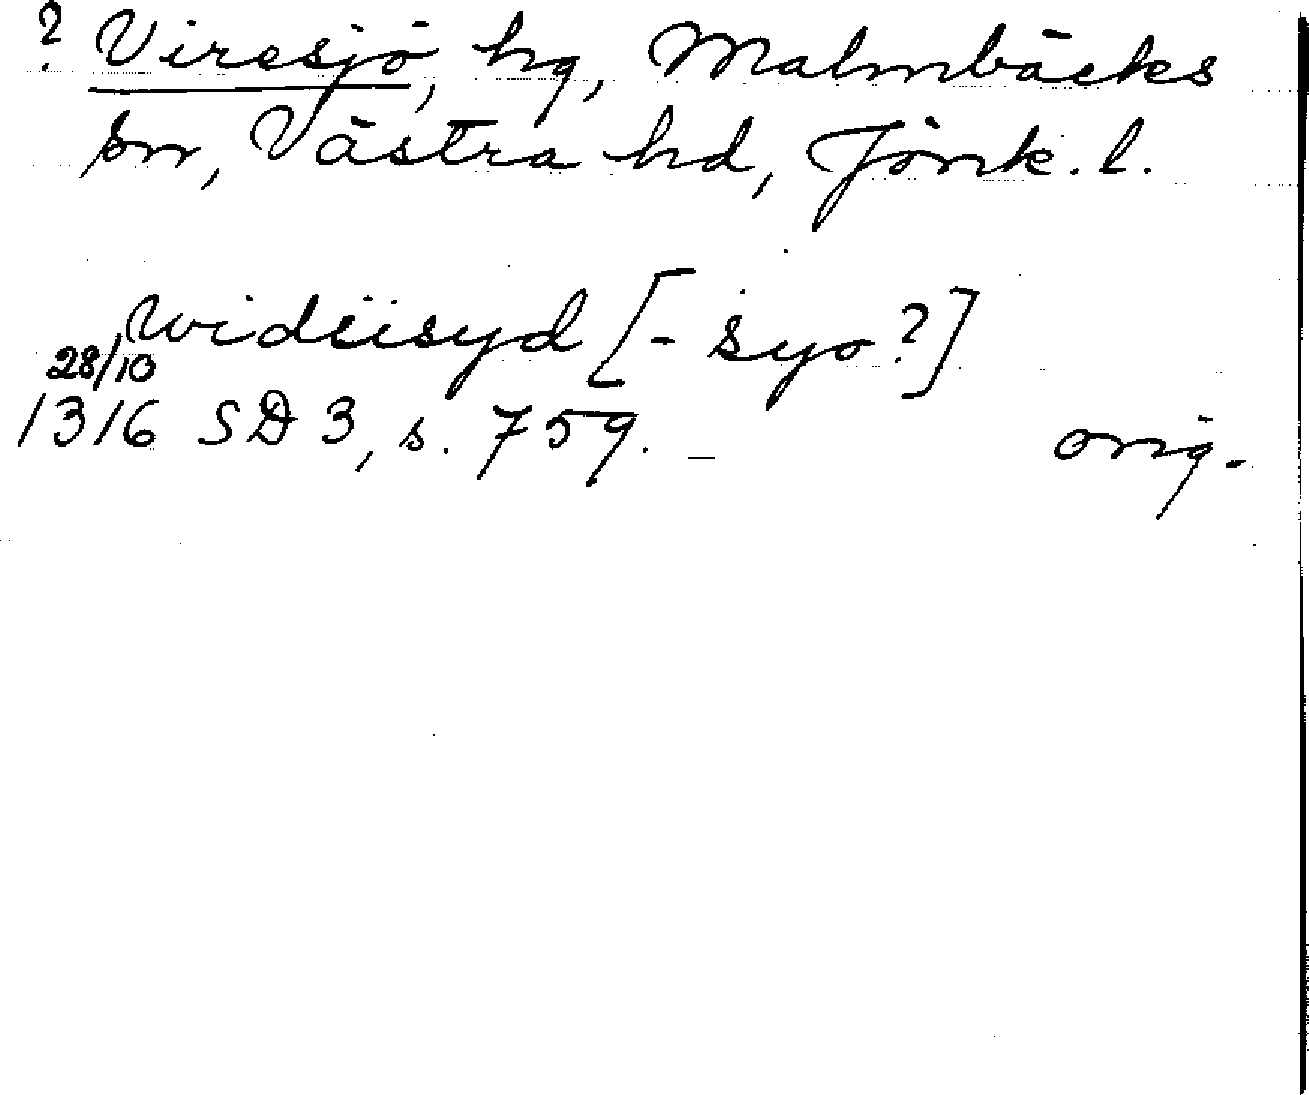 ? Viresjö, hg, Malmbäcks
sn, Västra hd, Jönk. l.
widiisyd [- syo?]
28/10
1316 SD 3, s. 759. –        orig.